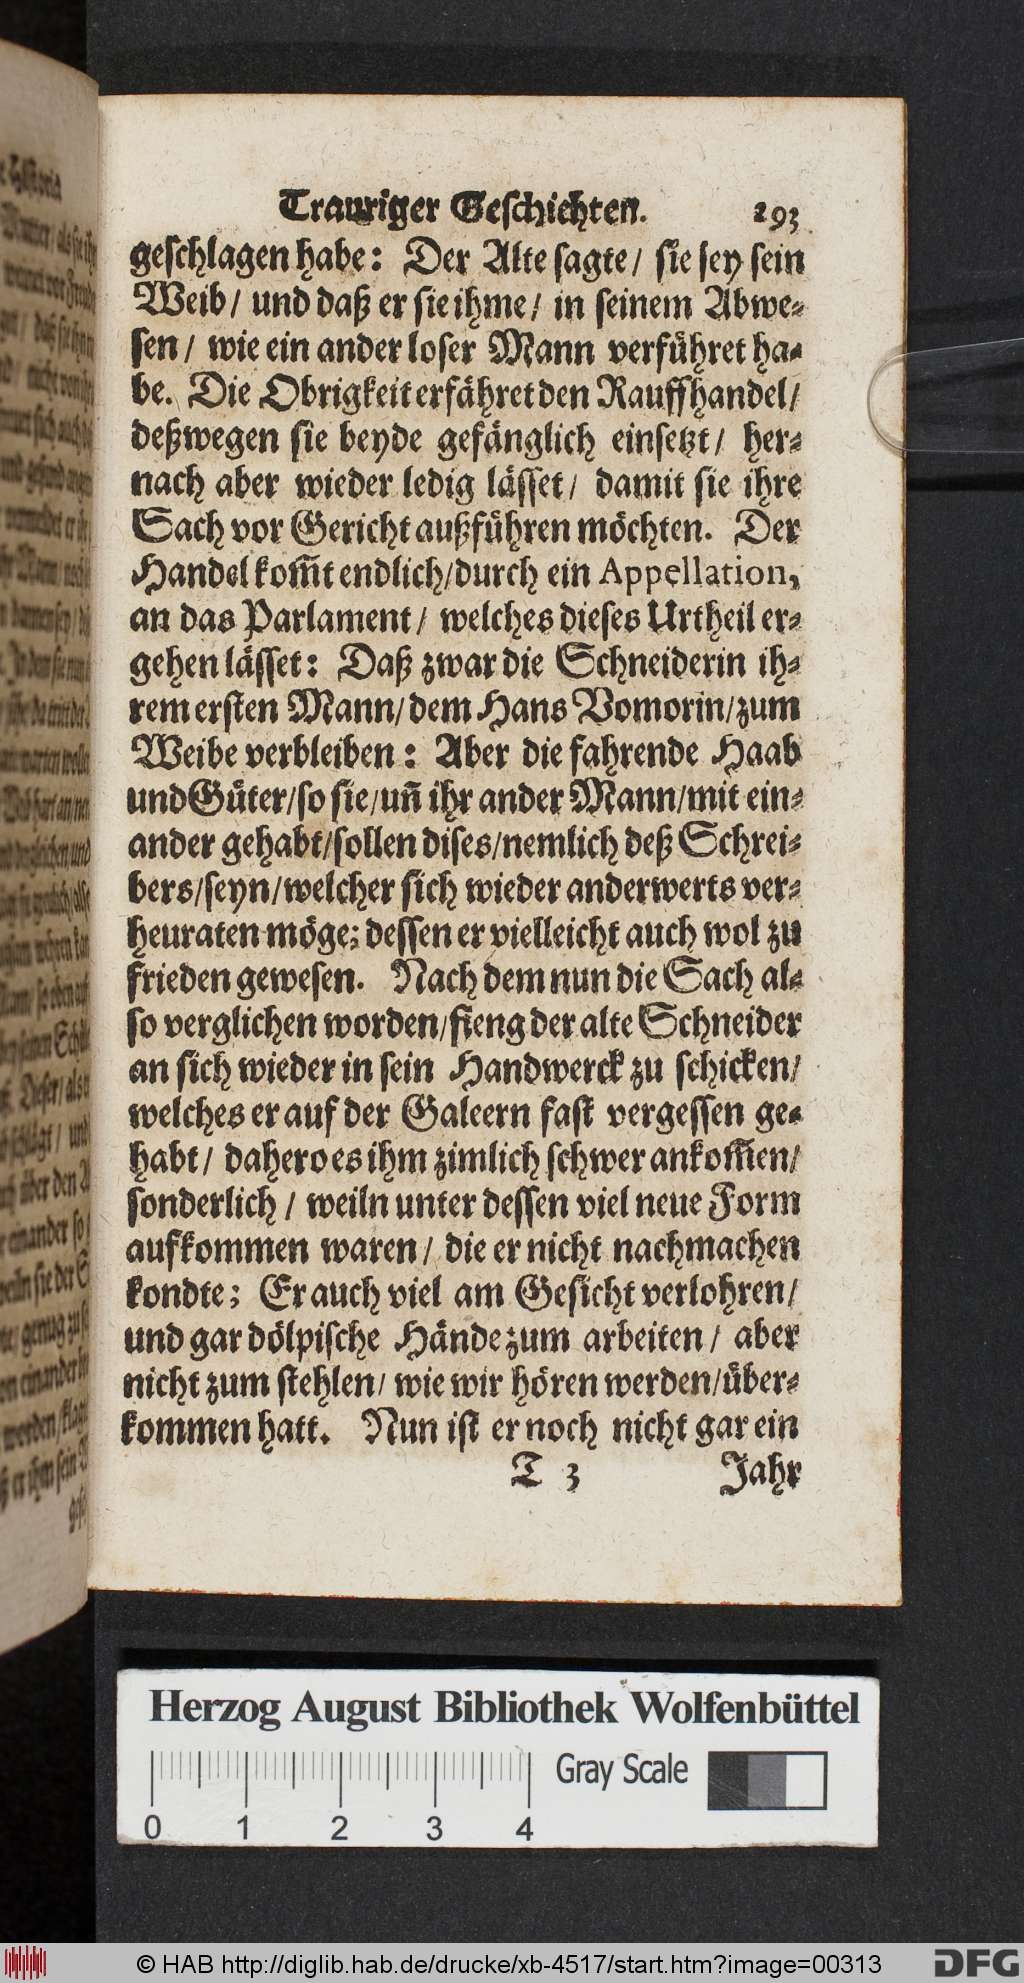 Trauriger Geschichten. 293
geschlagen habe: Der Alte sagte/ sie sey sein
Weib/ und daß er sie ihme/ in seinem Abwe-
sen/ wie ein ander loser Mann verführet ha-
be. Die Obrigkeit erfähret den Rauffhandel/
deßwegen sie beyde gefänglich einsetzt/ her-
nach aber wieder ledig lässet/ damit sie ihre
Sach vor Gericht außführen möchten. Der
Handel kom̃t endlich/durch ein Appellation,
an das Parlament/ welches dieses Urtheil er-
gehen lässet: Daß zwar die Schneiderin ih-
rem ersten Mann/dem Hans Vomorin/zum
Weibe verbleiben: Aber die fahrende Haab
und Güter/so sie/uñ ihr ander Mann/mit ein-
ander gehabt/sollen dises/nemlich deß Schrei-
bers/seyn/welcher sich wieder anderwerts ver-
heuraten möge; dessen er vielleicht auch wol zu
frieden gewesen. Nach dem nun die Sach al-
so verglichen worden/fieng der alte Schneider
an sich wieder in sein Handwerck zu schicken/
welches er auf der Galeern fast vergessen ge-
habt/ dahero es ihm zimlich schwer ankom̃en/
sonderlich/ weiln unter dessen viel neue Form
aufkommen waren/ die er nicht nachmachen
kondte; Er auch viel am Gesicht verlohren/
und gar dölpische Hände zum arbeiten/ aber
nicht zum stehlen/ wie wir hören werden/über-
kommen hatt. Nun ist er noch nicht gar ein
T 3 Jahr
Herzog August Bibliothek Wolfenbüttel
Gray Scale
0 1 2 3 4
© HAB http://diglib.hab.de/drucke/xb-4517/start.htm?image=00313
DFG